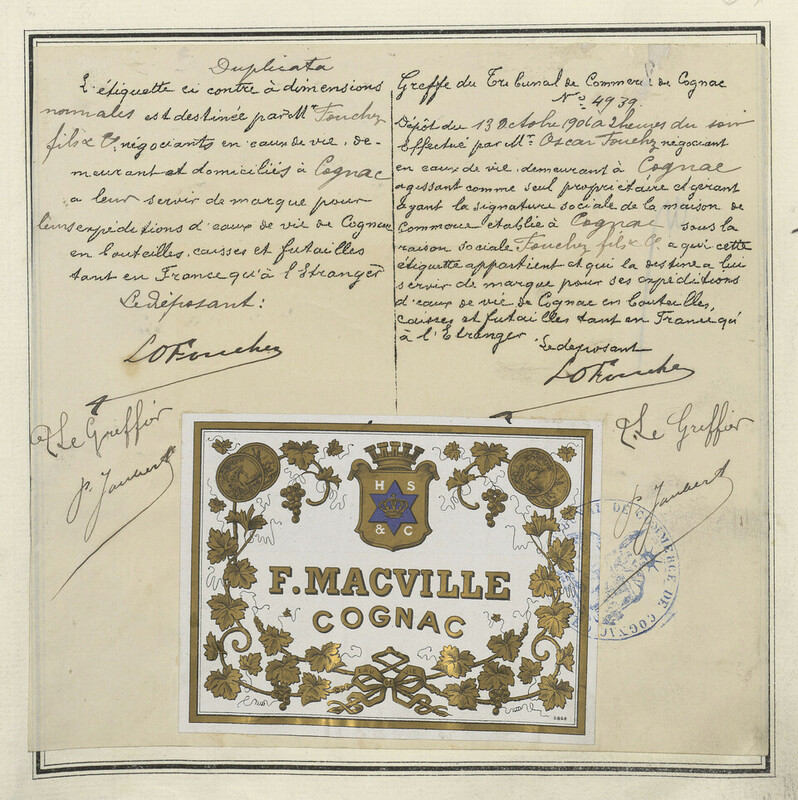 Duplicata
L'étiquette ci contre à dimensions
normales est destinée par Mr Fouchez
fils & Cie, négociants en eaux de vie, de-
meurant et domiciliés à Cognac
a leur servir de marque pour
leurs expéditions d'eaux de vie de Cognac
en bouteilles, caisses et futailles
tant en France qu'à l'Etranger
Le déposant:
LO Fouchez
Le Greffier
P. Jaubert
Greffe du Tribunal de Commerce de Cognac
No 4939.
Dépôt du 13 Octobre 1906 a 2 heures du soir
Effectué par Mr. Oscar Fouchez négociant
en eaux de vie, demeurant à Cognac
agissant comme seul propriétaire et gérant
ayant la signature sociale de la maison de
Commerce etablie à Cognac sous la
raison sociale Fouchez fils & Cie a qui cette
étiquette appartient et qui la destine a lui
servir de marque pour ses expéditions
d'eaux de vie de Cognac en bouteilles,
caisses et futailles tant en France qu'
à l'Etranger.
Le déposant
LO Fouchez
Le Greffier
P. Jaubert
H S
& C
F. MACVILLE
COGNAC
TRIBUNAL DE COMMERCE DE COGNAC